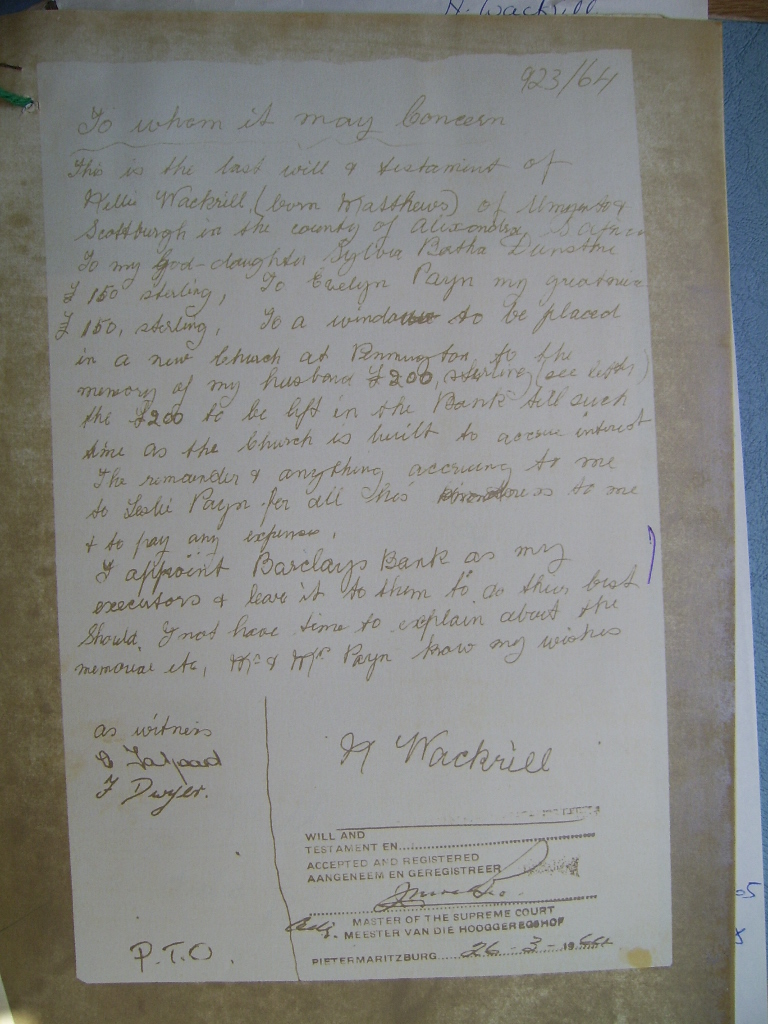 N. Wackrill
923/64
To whom it may Concern
This is the last will & testament of
Nellie Wackrill (born Matthews) of
Scottburgh in the county of Alexandra, S. Africa
To my god-daughter Sylvia Bertha
£150 sterling, To Evelyn Payn my great niece
£150, sterling, To a window to be placed
in a new Church at Pennington, to the
memory of my husband £200, sterling (see letter)
the £200 to be left in the Bank till such
time as the Church is built to accrue interest
The remainder & anything accruing to me
to Leslie Payn for all his kindness to me
& to pay any expenses.
I appoint Barclays Bank as my
executors & leave it to them to do their best
Should I not have time to explain about the
memorial etc, Mr & Mrs Payn know my wishes
as witness
F Dwyer.
N Wackrill
WILL AND
TESTAMENT EN
ACCEPTED AND REGISTERED
AANGENEEM EN GEREGISTREER
MASTER OF THE SUPREME COURT
MEESTER VAN DIE HOOGGEREGSHOF
PIETERMARITZBURG 26-3-1964
P.T.O.